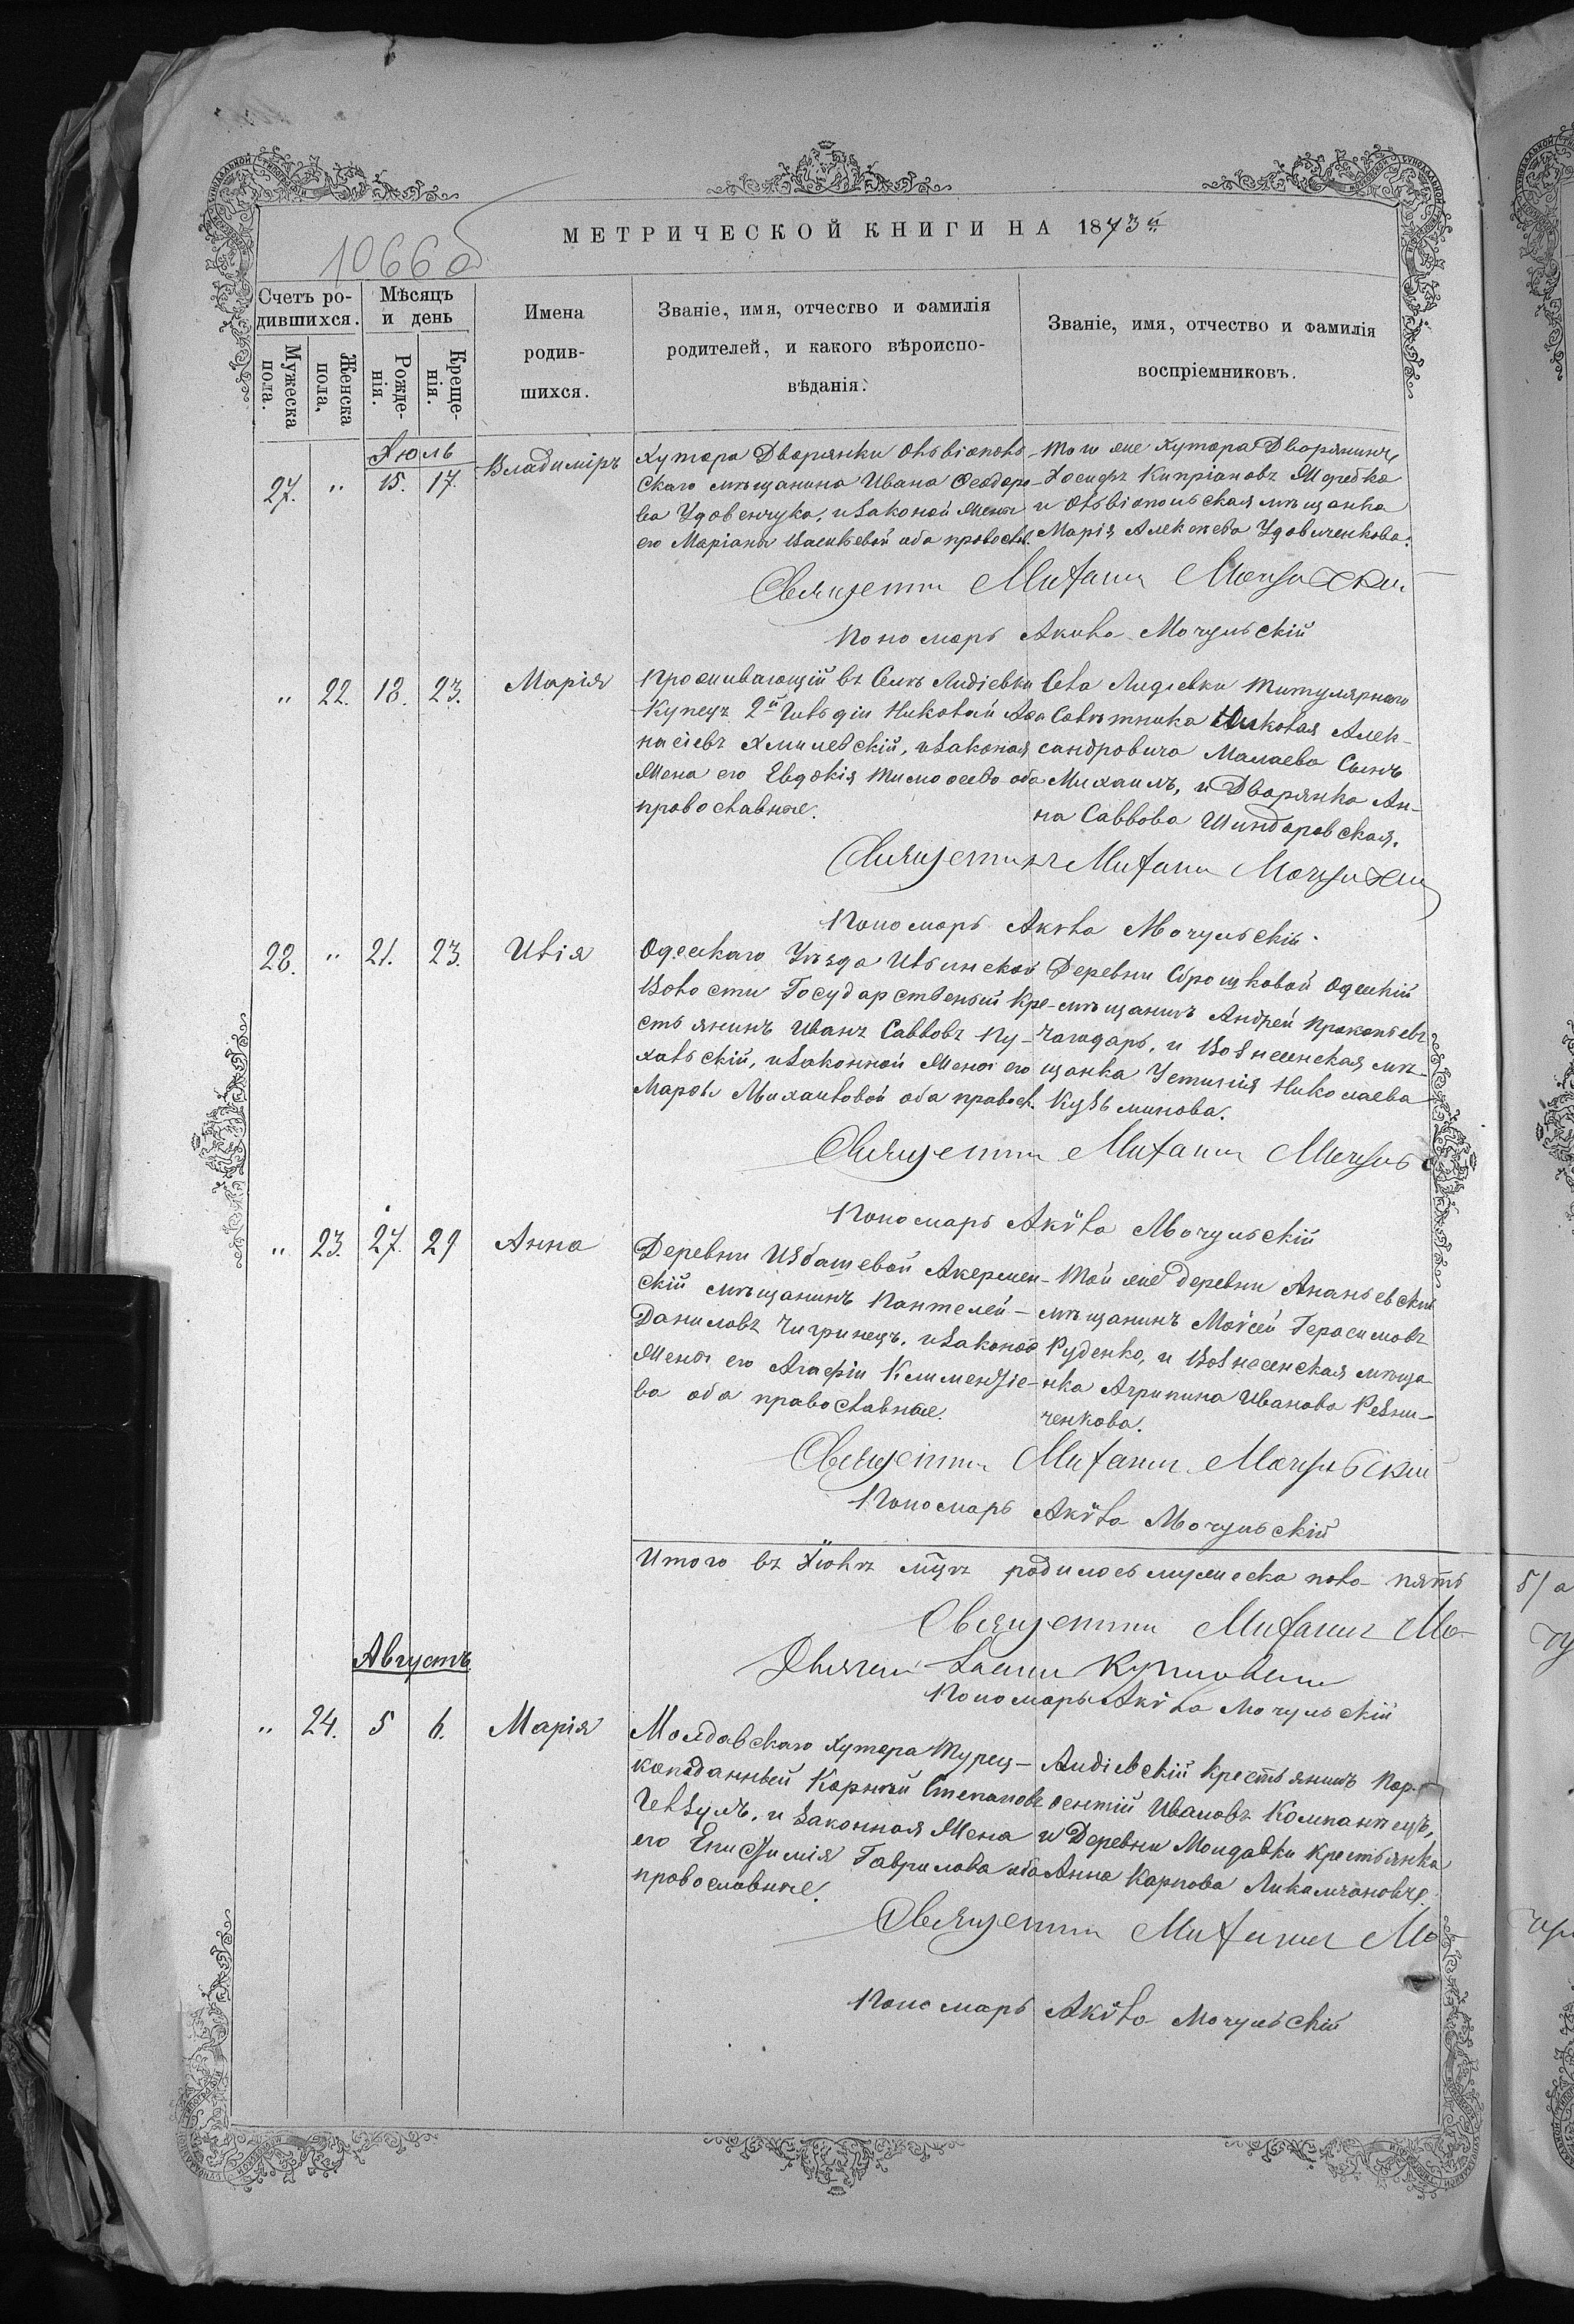 1066 об
МЕТРИЧЕСКОЙ КНИГИ НА 1873й
Счетъ ро-
дившихся.
Мужеска
пола.
Женска
пола,
Мѣсяцъ
и день
Рожде-
нія.
Креще-
нія.
Имена
родив-
шихся.
Званіе, имя, отчество и фамилія
родителей, и какого вѣроиспо-
вѣданія.
Званіе, имя, отчество и фамилія
воспріемниковъ.
Іюль
27. " 15. 17. Владиміръ
Хутора Дворянки Овидіополь-
скаго мѣщанина Ивана Ѳеодоро-
ва Удовенчука, и законой жены
его Маріаны Васильевой оба правосл.
Того же хутора Дворянинъ
Іосифъ Кипріановъ
и Овидіопольская мѣщанка
Марія Алексѣева Удовиченкова.
Священникъ Михаилъ Мочульскій
Пономарь Акила Мочульскій
" 22. 18. 23. Марія
Проживающій въ Селѣ Лидіевки
Купецъ 2й Гильдіи Николай Аѳа-
насіевъ Хмилевскій, и законая
жена его Евдокія Тимоѳеева оба
православные.
Села Лидіевки Титулярнаго
Совѣтника Николая Алек-
сандровича Малаева Сынъ
Михаилъ, и Дворянка Ан-
на Саввова Шиндаровская.
Священникъ Михаилъ Мочульскій
Пономарь Акила Мочульскій.
28. " 21. 23. Илія
Одесскаго Уѣзда Ильинской
Волости Государственый Кре-
стьянинъ Иванъ Саввовъ Пу-
хальскій, и законной жены его
Марѳы Михайловой оба правосл.
Деревни Одесскій
мѣщанинъ Андрей Прокопьевъ
Чагидарь, и Вознесенская мѣ-
щанка Устинія Николаева
Кузьминова.
Священникъ Михаилъ Мочуль
Пономарь Акѵла Мочульскій
" 23. 27. 29 Анна
Деревни Избашевой Акермен-
скій мѣщанинъ Пантелей-
Даниловъ Чигринецъ, и законой
жены его Агафіи Климентіе-
ва оба православные.
Той же деревни Ананьевскій
мѣщанинъ Моѵсей Герасимовъ
Руденко, и Вознесенская мѣща-
нка Агрипина Иванова Резни-
ченкова.
Священникъ Михаилъ Мочульскій
Пономарь Акѵла Мочульскій
Итого въ Іюлѣ мцѣ родилось мужеска пола пять
Священникъ Михаилъ Мо-
Пономарь Акѵла Мочульскій
Августъ
" 24. 5 6. Марія
Молдавскаго хутора Турец-
коподанный Корній Степановъ
и законная жена
его Епистимія Гаврилова оба
православные.
Лидіевскій крестьянинъ Пар-
ѳентій Ивановъ Компанѣецъ,
и Деревни Молдавки крестьянка
Анна Карпова
Священникъ Михаилъ Мо-
Пономарь Акѵла Мочульскій